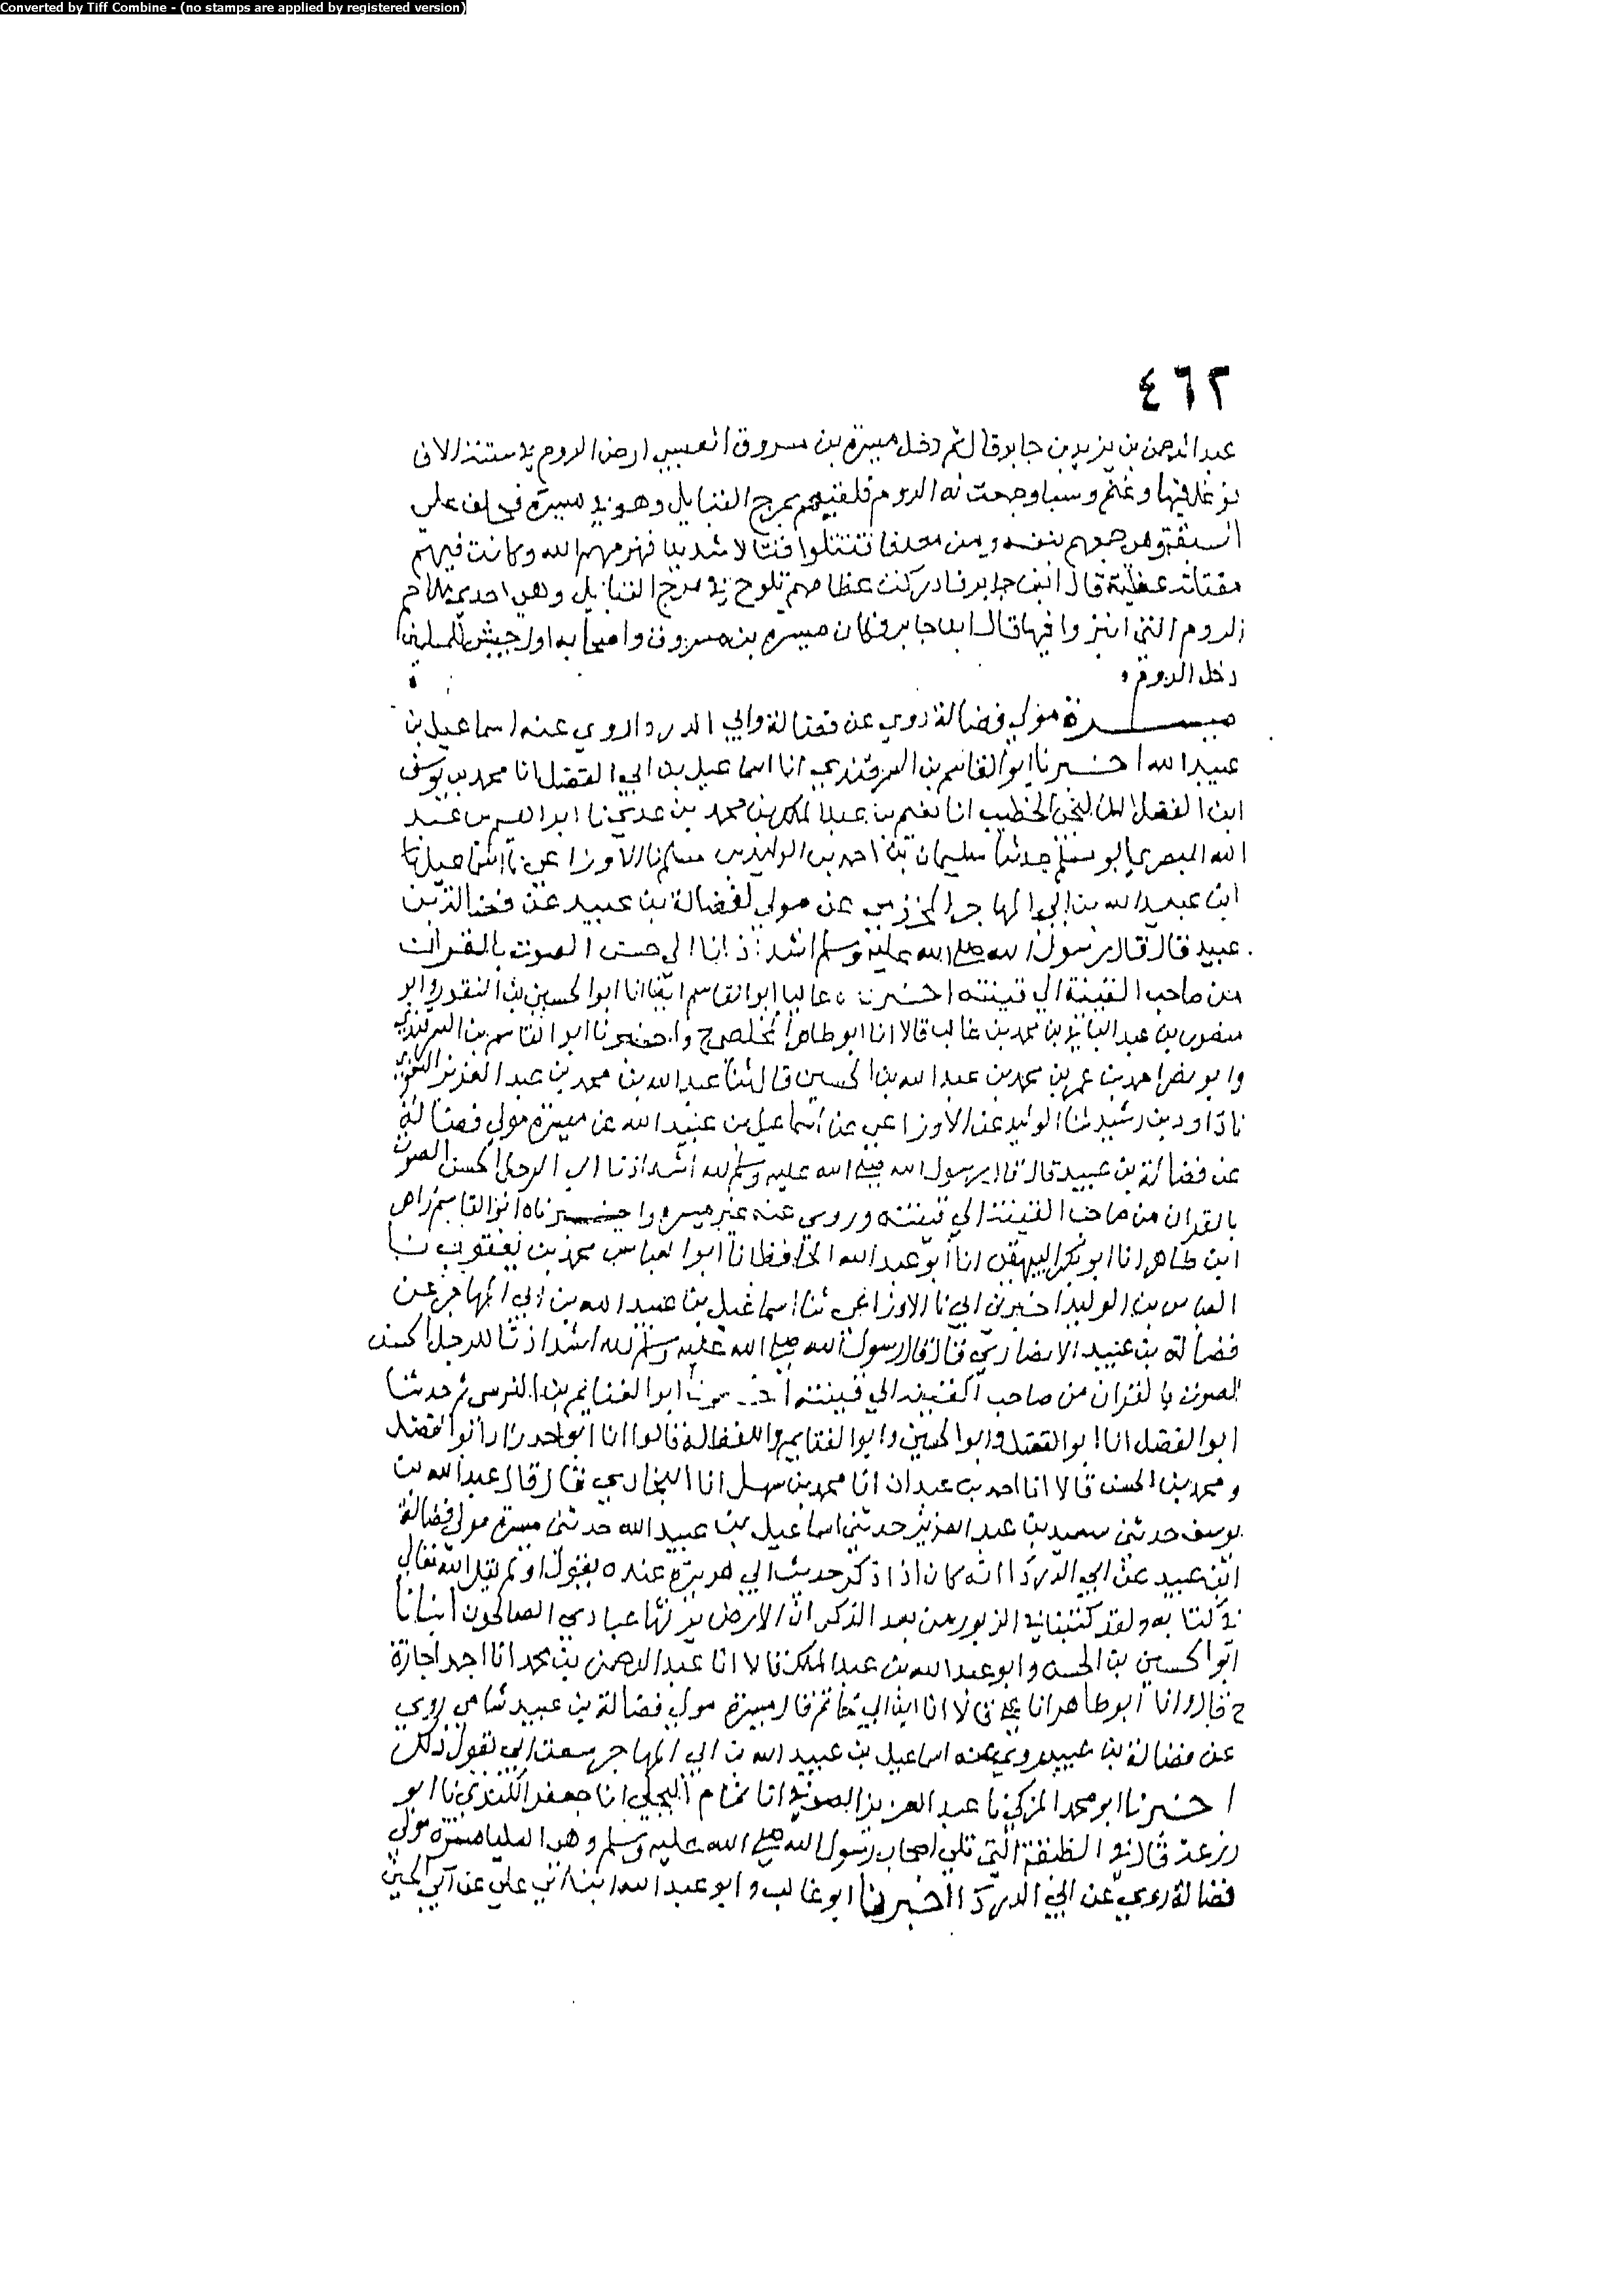 Converted by Tiff Combine - (no stamps are applied by registered version)
٤٦٢
عبد الرحمن بن يزيد بن جابر قال ثم دخل ميسرة بن مسروق العبسي ارض الروم في ستة الاف
توغل فيها وغنم وسبا وجمعت له الروم فلقيهم بمرج القبايل وهو في ميسرة فحلف على
جمعهم بنفسه ومن معه فاقتتلوا قتالا شديدا فهزمهم الله وكانت فيهم
مقتلة عظيمة قال ابن جابر فادركت عظامهم تلوح في مرج القبايل وهي احدى ملاحم
الروم التي فيها قال ابن جابر فكان ميسرة بن مسروق واصحابه اول جيش للمسلمين
دخل الروم
ميسرة مولى فضالة روى عن فضالة وابي الدردا روى عنه اسماعيل بن
عبيد الله اخبرنا ابو القاسم بن السمرقندي انا اسماعيل بن ابي الفضل انا محمد بن يوسف
ابن الفضل الخطيب انا نعيم بن عبد الملك بن محمد بن عدي نا ابراهيم بن عبد
الله البصري ابو مسلم حدثنا سليمان بن احمد بن الوليد بن مسلم نا الاوزاعي نا اسماعيل
ابن عبيد الله بن ابي المهاجر المخزومي عن مولى لفضالة بن عبيد عن فضالة بن
عبيد قال قال رسول الله صلى الله عليه وسلم اشد اذانا الى حسن الصوت بالقران
من صاحب القينة الى قينته اخبرناه عاليا ابو القاسم ايضا انا ابو الحسين بن النقور وابو
منصور بن عبد الباقي بن محمد بن غالب قالا انا ابو طاهر المخلص ح واخبرنا ابو القاسم بن السمرقندي
وابو نصر احمد بن عمر بن محمد بن عبد الله بن الحسين قال ثنا عبد الله بن محمد بن عبد العزيز البغوي
نا داود بن رشيد ثنا الوليد عن الاوزاعي عن اسماعيل بن عبيد الله عن ميسرة مولى فضالة
عن فضالة بن عبيد قال قال رسول الله صلى الله عليه وسلم لله اشد اذنا الى الرجل الحسن الصوت
بالقران من صاحب القينة الى قينته وروى عنه غير ميسرة واخبرناه ابو القاسم زاهر
ابن طاهر انا ابو بكر البيهقي انا ابو عبد الله الحافظ نا ابو العباس محمد بن يعقوب نا
العباس بن الوليد اخبرني ابي نا الاوزاعي ثنا اسماعيل بن عبيد الله بن ابي المهاجر عن
فضالة بن عبيد الانصاري قال قال رسول الله صلى الله عليه وسلم لله اشد اذنا للرجل الحسن
الصوت بالقران من صاحب القينة الى قينته ابو الغنايم بن النرسي ثم حدثنا
ابو الفضل انا ابو الفضل وابو الحسين وابو الغنايم واللفظ له قالوا انا ابو احمد زاد ابو الفضل
ومحمد بن الحسن قالا انا احمد بن عبدان انا محمد بن سهل انا البخاري قال قال عبد الله بن
يوسف حدثني سعيد بن عبد العزيز حدثني اسماعيل بن عبيد الله حدثني ميسرة مولى فضالة
ابن عبيد عن ابي الدردا انه كان اذا ذكر حديث ابي هريرة عنده يقول اولم يقل الله تعالى
في كتابه ولقد كتبنا في الزبور من بعد الذكر ان الارض يرثها عبادي الصالحون انبانا
ابو الحسين بن الحسن وابو عبد الله بن عبد الملك قالا انا عبد الرحمن بن محمد انا احمد اجازة
ح قال وانا ابو طاهر انا علي قالا انا ابن ابي حاتم قال ميسرة مولى فضالة بن عبيد شامي روى
عن فضالة بن عبيد روى عنه اسماعيل بن عبيد الله بن ابي المهاجر سمعت ابي يقول ذلك
اخبرنا ابو محمد المزكي نا عبد العزيز الصوفي انا تمام البجلي انا جعفر الكندي نا ابو
زرعة قال في الطبقة التي تلي اصحاب رسول الله صلى الله عليه وسلم وهي العليا ميسرة مولى
فضالة روى عن ابي الدردا اخبرنا ابو غالب وابو عبد الله ابنا ابي علي عن ابي الحسين